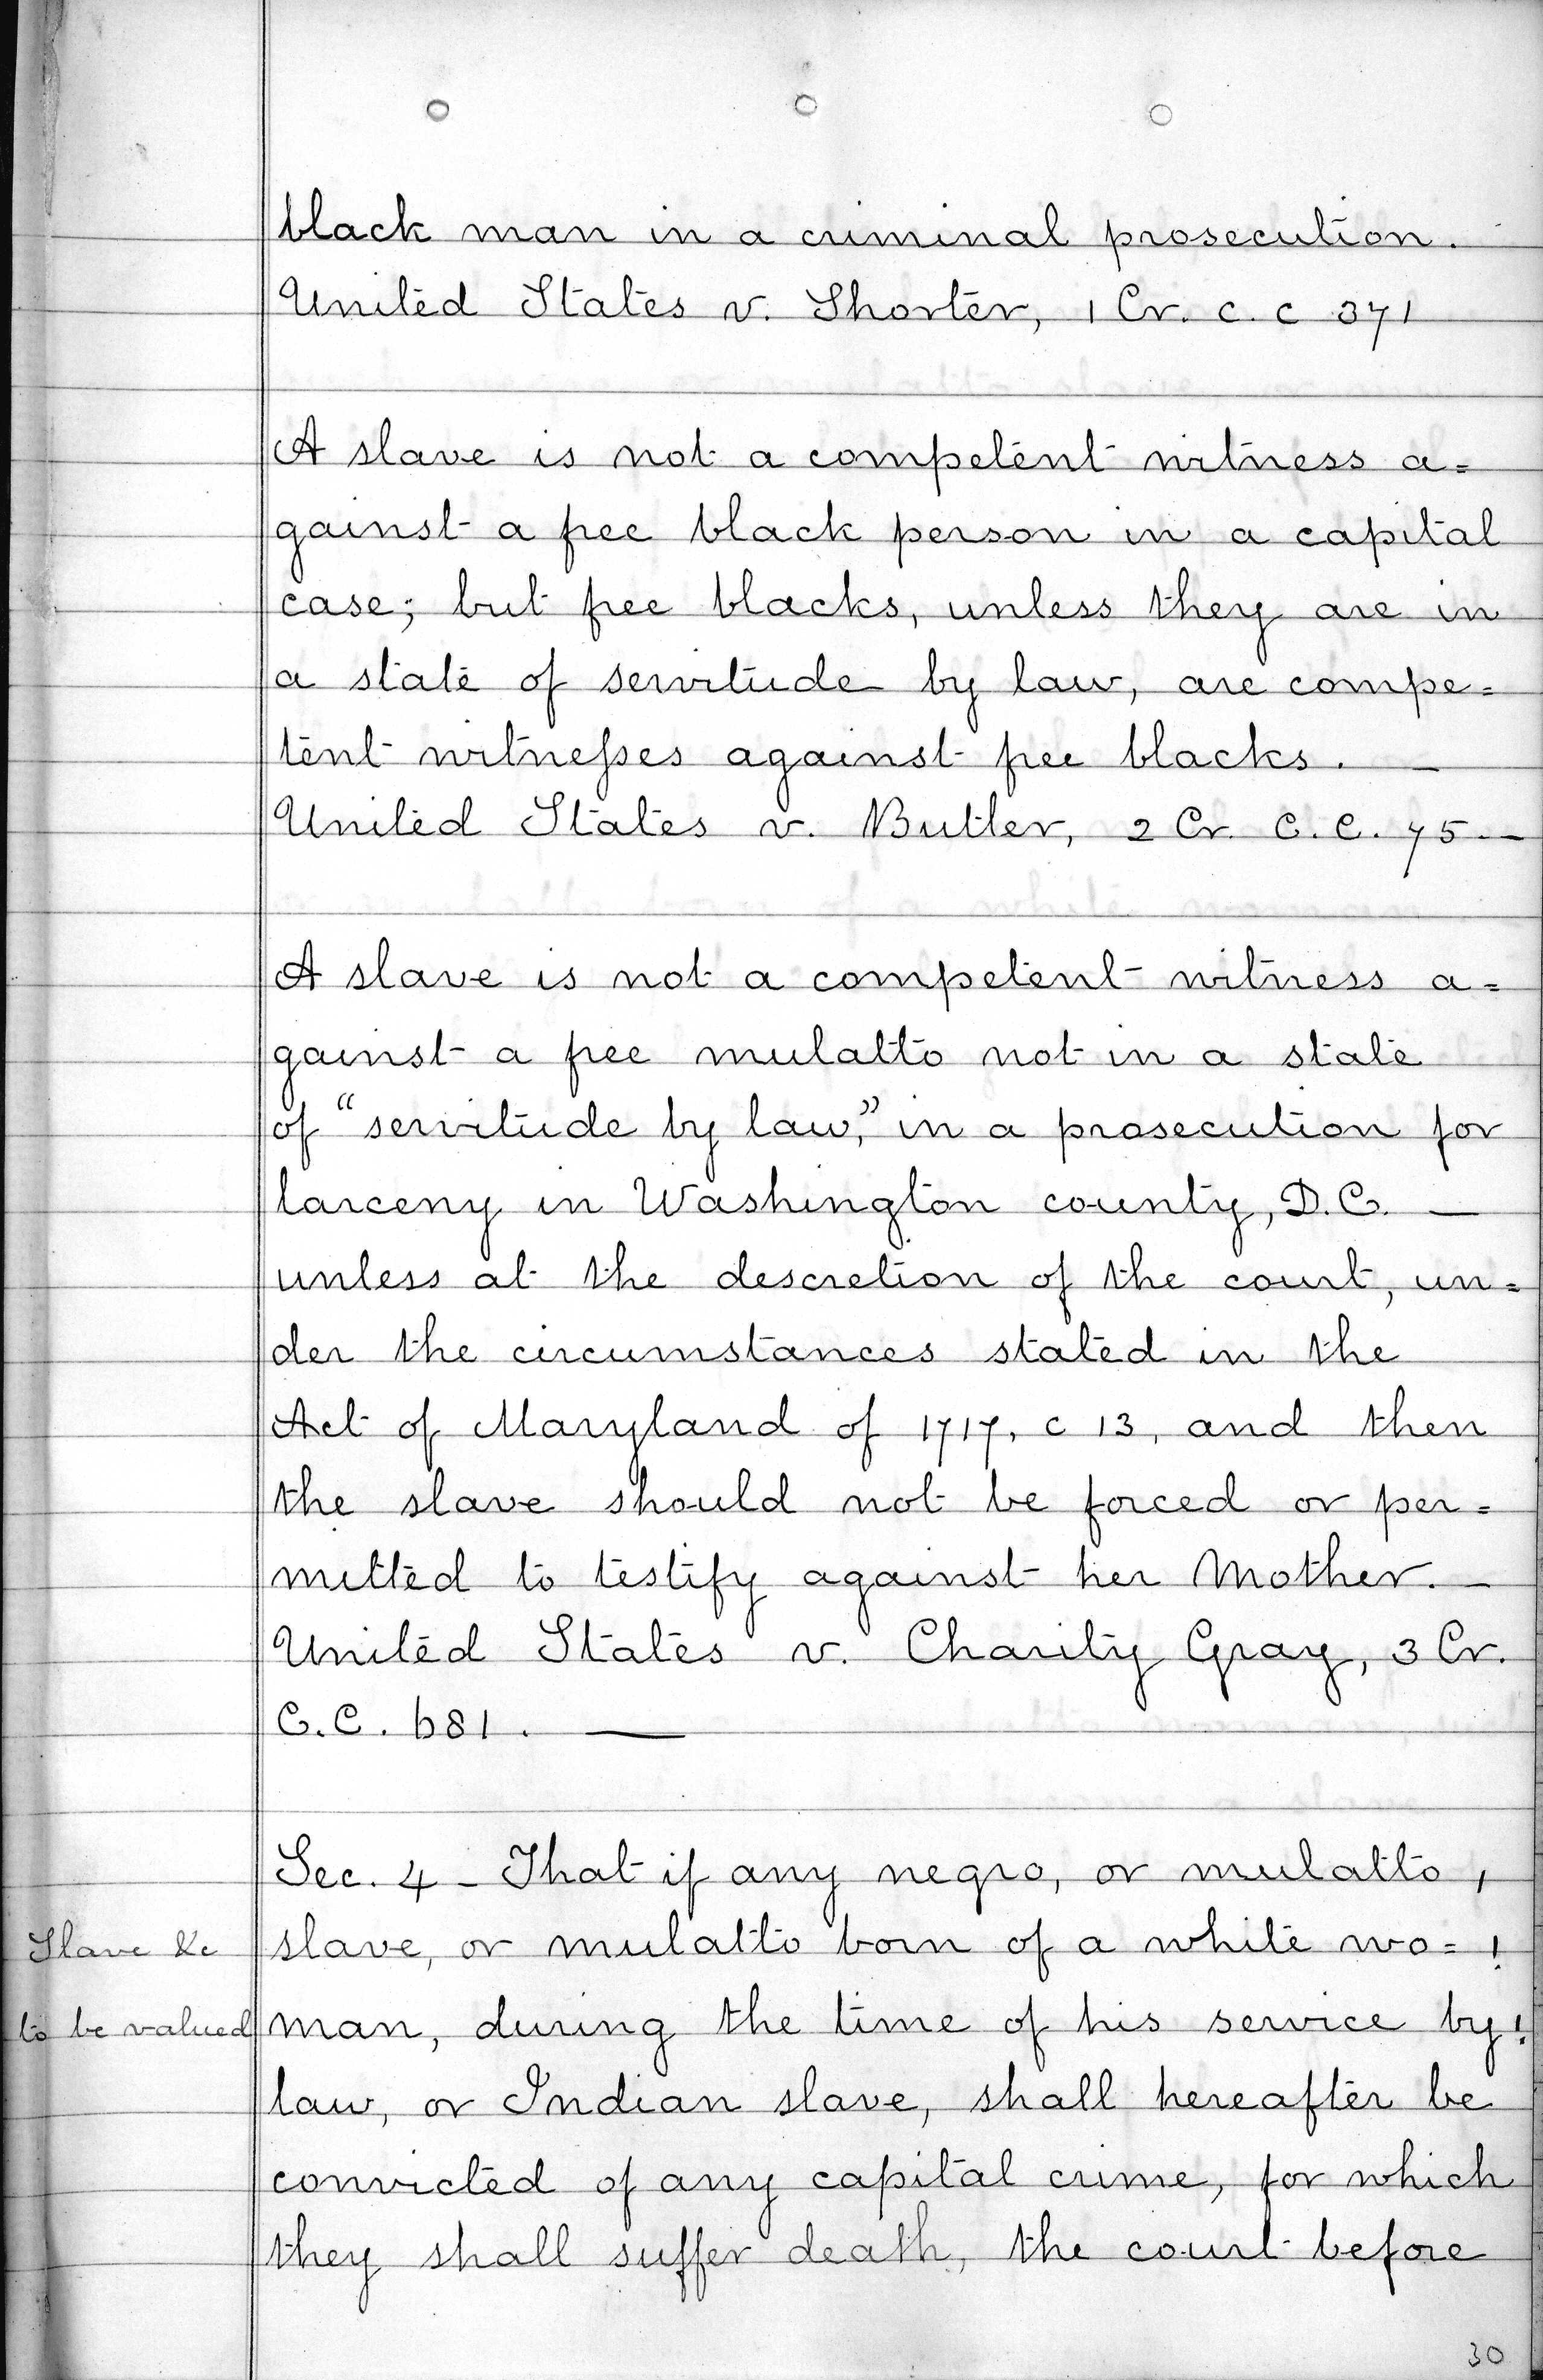 black man in a criminal prosecution.
United States v. Shorter, 1 Cr. c. c 371
A slave is not a competent witness a=
gainst a free black person in a capital
case; but free blacks, unless they are in
a state of servitude by law, are compe=
tent witnesses against free blacks. —
United States v. Butler, 2 Cr. C.C. 75.—
A slave is not a competent witness a=
gainst a free mulatto not in a state
of "servitude by law," in a prosecution for
larceny in Washington county, D.C. —
unless at the descretion of the court, un=
der the circumstances stated in the
Act of Maryland of 1717, c 13, and then
the slave should not be forced or per=
mitted to testify against her Mother. —
United States v. Charity Gray, 3 Cr.
C.C. 681. —
Sec. 4 – That if any negro, or mulatto,
Slave &c
slave, or mulatto born of a white wo=
to be valued
man, during the time of his service by
law, or Indian slave, shall hereafter be
convicted of any capital crime, for which
they shall suffer death, the court before
30